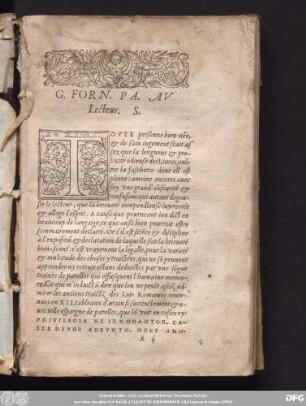 G. FORN. PA. AV
Lecteur. S.
TOUTE personne bien née,
& de sain iugement sçait as
sez que la longueur & pro
lixité odieuse des Liures, oul
tre la fascherie dont ell' est
pleine: ameine encores auec
soy vne grand' obscurité &
confusion: qui autant degou-
ste le lecteur, que la brieueté
& allege l'esprit. A cause que pourroit bon dict en
beaucoup de langaige, ce que aussi bien pourroit estre
sommairement declaré. Or s'il est science & discipline
à l'exposition & declaration de laquelle soit la brieueté
bien seant': c'est vrayement la legalle, pour la varieté
& multitude des choses y traictées, qui ne se peuuent
apprendre ny retenir estans deduictes par vne longue
de parolles qui offusquent l'humaine memoi-
re. Ce qui m'induict à dire que lon ne peult assez ad-
mirer les anciens traictz des Loix Romaines conte-
nues en XII. tableaux d'arain si succinctement & a-
uec telle espargne de parolles, que lõ voit en cestes cy:
PRIVILEGIA NE IRROGANTOR. CA-
STE DIVOS ADEVNTO. OPES AMO-
A ij